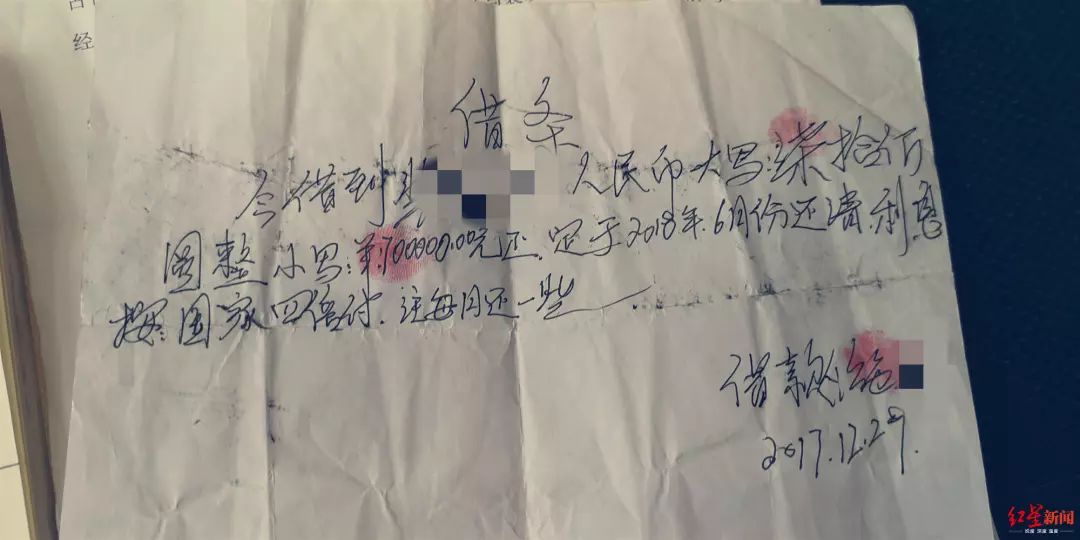 经
借条
今借到 人民币大写:柒拾万
圆整 小写:700000.00元还.定于2018年.6月份还清.利息
按:国家四倍付.注每月还一些
借款人:
2017.12.29.
红星新闻